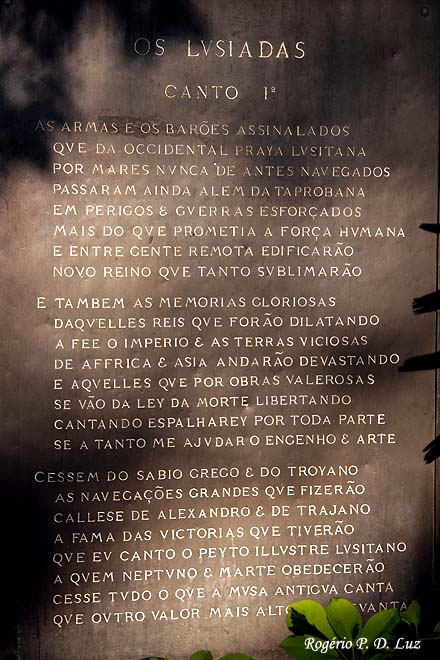 OS LVSIADAS
CANTO Iº
AS ARMAS E OS BARÕES ASSINALADOS
QVE DA OCCIDENTAL PRAYA LVSITANA
POR MARES NVNCA DE ANTES NAVEGADOS
PASSARAM AINDA ALEM DA TAPROBANA
EM PERIGOS & GVERRAS ESFORÇADOS
MAIS DO QVE PROMETIA A FORÇA HVMANA
E ENTRE GENTE REMOTA EDIFICARÃO
NOVO REINO QVE TANTO SVBLIMARÃO
E TAMBEM AS MEMORIAS GLORIOSAS
DAQVELLES REIS QVE FORÃO DILATANDO
A FEE O IMPERIO & AS TERRAS VICIOSAS
DE AFFRICA & ASIA ANDARÃO DEVASTANDO
E AQVELLES QVE POR OBRAS VALEROSAS
SE VÃO DA LEY DA MORTE LIBERTANDO
CANTANDO ESPALHAREY POR TODA PARTE
SE A TANTO ME AJVDAR O ENGENHO & ARTE
CESSEM DO SABIO GREGO & DO TROYANO
AS NAVEGAÇÕES GRANDES QVE FIZERÃO
CALLESE DE ALEXANDRO & DE TRAJANO
A FAMA DAS VICTORIAS QVE TIVERÃO
QVE EV CANTO O PEYTO ILLVSTRE LVSITANO
A QVEM NEPTVNO & MARTE OBEDECERÃO
CESSE TVDO O QVE A MVSA ANTIGVA CANTA
QVE OVTRO VALOR MAIS ALTO
Rogério P. D. Luz